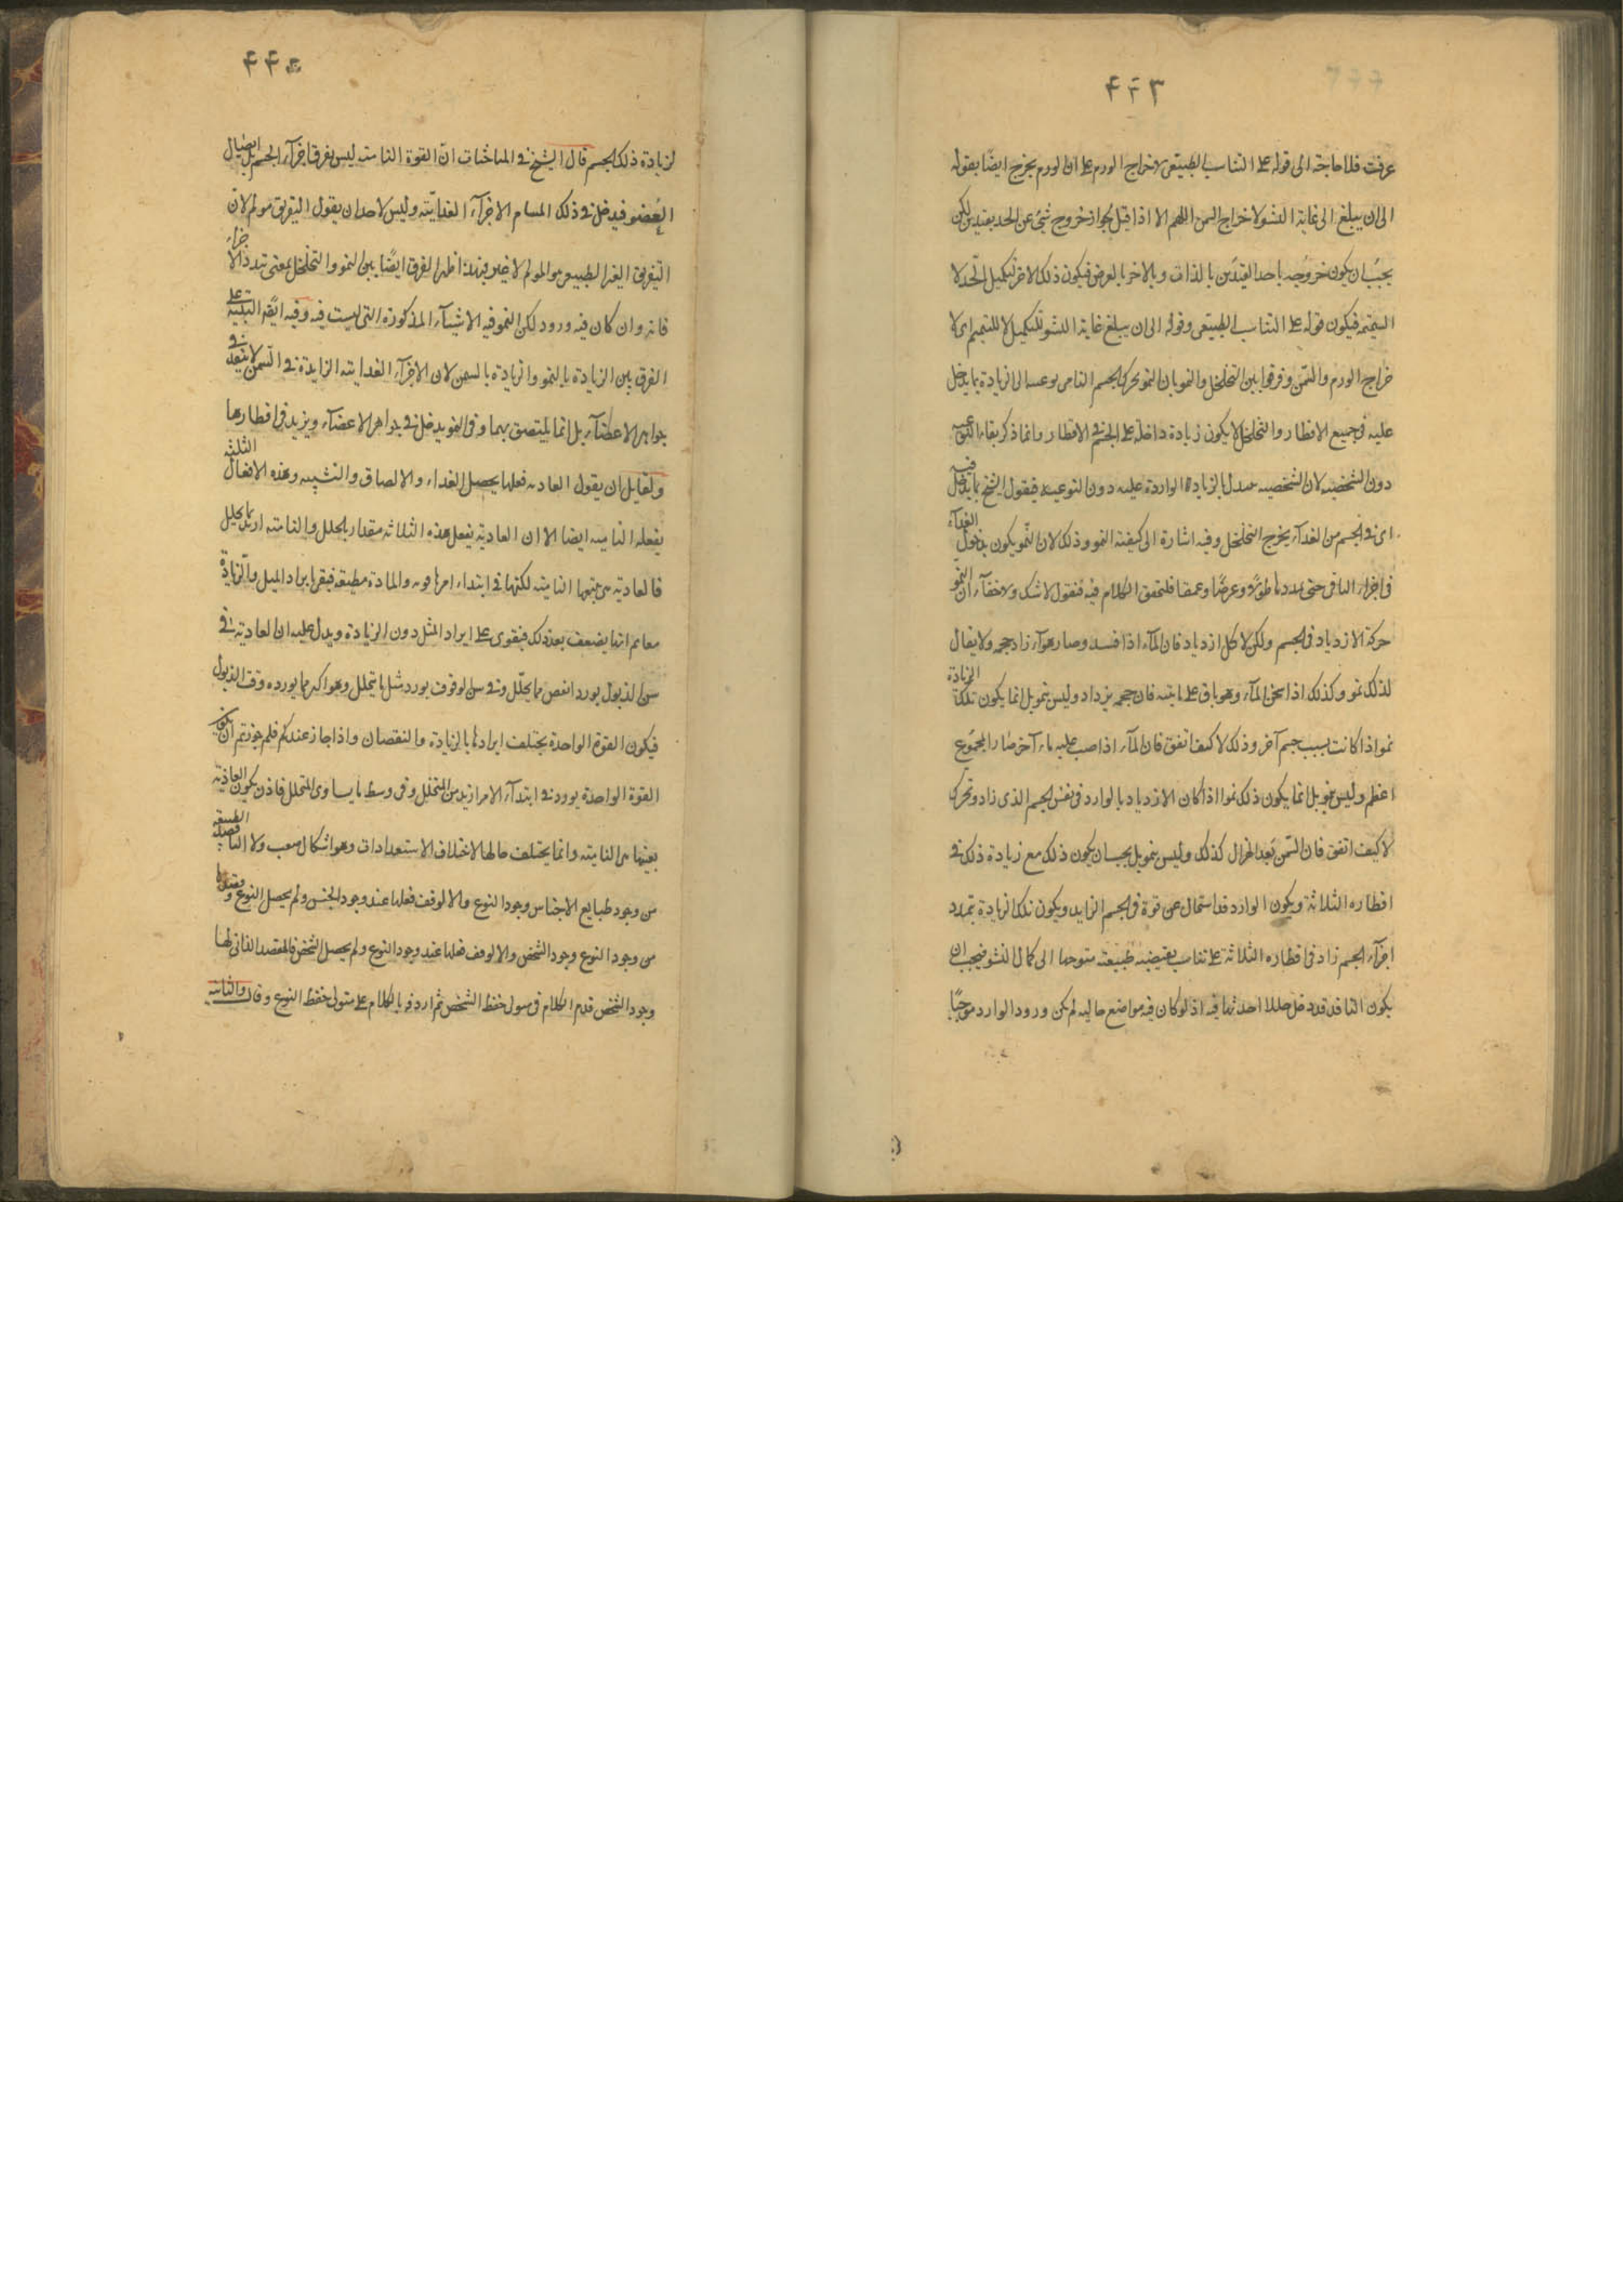 ٤٤٣
عرفت فلا حاجة الى قوله على التناسب الطبيعى لاخراج الورم على ان الورم يخرج ايضًا بقوله
الى ان يبلغ الى غاية النشو لاخراج السمن اللهم الا اذا قيل بجواز خروج شئ عن الحد بقيدين لكن
يجب ان يكون خروجه باحد القيدين بالذات وبالاخر بالعرض فيكون ذلك الاخر لتكميل الحد لا
لتتميمه فيكون قوله على التناسب الطبيعى وقوله الى ان يبلغ غاية النشو للتكميل لا للتتميم اى لا
خراج الورم والسمن وفرقوا بين التخلخل والنمو بان النمو تحرك الجسم النامى الى الزيادة بما يدخل
عليه فى جميع الاقطار والتخلخل لا يكون زيادة داخلة على الجسم فى الاقطار وانما ذكر بقاء النوعية
دون الشخصية لان الشخصية تتبدل بالزيادة الواردة عليه دون النوعية فيقول الشيخ بما يدخل فيه
اى فى الجسم من الغدآء يخرج التخلخل وفيه اشارة الى كيفية النمو وذلك لان النمو يكون بدخول الغدآء
فى اجزاء النامى حتى يمددها طولاً وعرضًا وعمقا فلنحقق الكلام فيه فنقول لا شك ولا خفآء ان النمو
حركة الازدياد فى الجسم ولكن لا كل ازدياد فان المآء اذا فسد وصار هوآء زاد حجمه ولا يقال
لذلك نمو وكذلك اذا سخن المآء وهو باق على مايته فان حجمه يزداد وليس بنمو بل انما يكون تلك الزيادة
نموا اذا كانت بسبب جسم آخر وذلك لا كيف اتفق فان المآء اذا صب عليه ماء آخر صار المجموع
اعظم وليس بنمو بل انما يكون ذلك نموا اذا كان الازدياد بالوارد فى نفس الجسم الذى زاد وتحرك
لا كيف اتفق فان السمن بعد الهزال كذلك وليس بنمو بل يجب ان يكون ذلك مع زيادة ذلك فى
اقطاره الثلاثة ويكون الوارد قد استحال عن قوة فى الجسم الزايد ويكون تلك الزيادة بتمدد
اجزآء الجسم زاد فى اقطاره الثلاثة على تناسب يقتضيه طبيعته متوجها الى كمال النشو فيجب ان
يكون النافذ قد دخل خللا احدثها فيه اذ لو كان فيه مواضع خالية لم يكن ورود الوارد موجبًا
٤٤٥
لزيادة ذلك الجسم قال الشيخ فى المباحثات ان القوة النامية ليس يفرق اجزآء الجسم بل ايصال
العضو فيدخل فى ذلك المسام الاجزآء الغدايية وليس لاحد ان يقول التفريق مولم لان
التفريق الغير الطبيعى هو المولم لا غير فبهذا ظهر الفرق ايضًا بين النمو والتخلخل بمعنى تبدد الاجزاء
فانه وان كان فيه ورود لكن النمو فيه الاشيآء المذكورة التى ليست فيه وفيه ايضا التنبيه على
الفرق بين الزيادة بالنمو والزيادة بالسمن لان الاجزآء الغدايية الزايدة فى السمن لا ينفذ فى
جواهر الاعضآء بل انما يلتصق بهما وفى النمو يدخل فى جواهر الاعضآء ويزيد فى اقطارها الثلثة
ولقايل ان يقول الغادية فعلها يحصل الغداء والالصاق والتشبيه وهذه الافعال
يفعله النامية ايضا الا ان الغادية يفعل هذه الثلاثة مقدار ما يتحلل والنامية ازيد مما يتحلل
فالغادية هى بعينها النامية لكنها فى ابتداء امرها قوية والمادة مطيعة فيقوى ايراد المثل والزيادة
معا ثم انها يضعف بعد ذلك فيقوى على ايراد المثل دون الزيادة ويدل عليه ان الغادية فى
سن الذبول يورد انقص مما يحلل وفى سن الوقوف يورد مثل ما يتحلل وهو اكبر مما يورده وقت الذبول
فيكون القوة الواحدة يختلف ايرادها بالزيادة والنقصان واذا جاز عندكم فلم جوزتم ان يكون
القوة الواحدة يورد فى ابتدآء الامر ازيد من المتحلل وفى وسط ما يساوى المتحلل فاذن يكون الغاذية
بعينها هى النامية وانما يختلف حالها لاختلاف الاستعدادات وهو اشكال صعب ولا
من وجود طبايع الاجناس وجود النوع والا لوقف فعلها عند وجود الجنس ولم يحصل النوع و
من وجود النوع وجود الشخص والا لوقف فعلها عند وجود النوع ولم يحصل الشخص فالمقصد الذاتى لها
وجود الشخص قدم الكلام فى حفظ الشخص ثم اردفه بالكلام على متولى حفظ النوع وقال والثانية